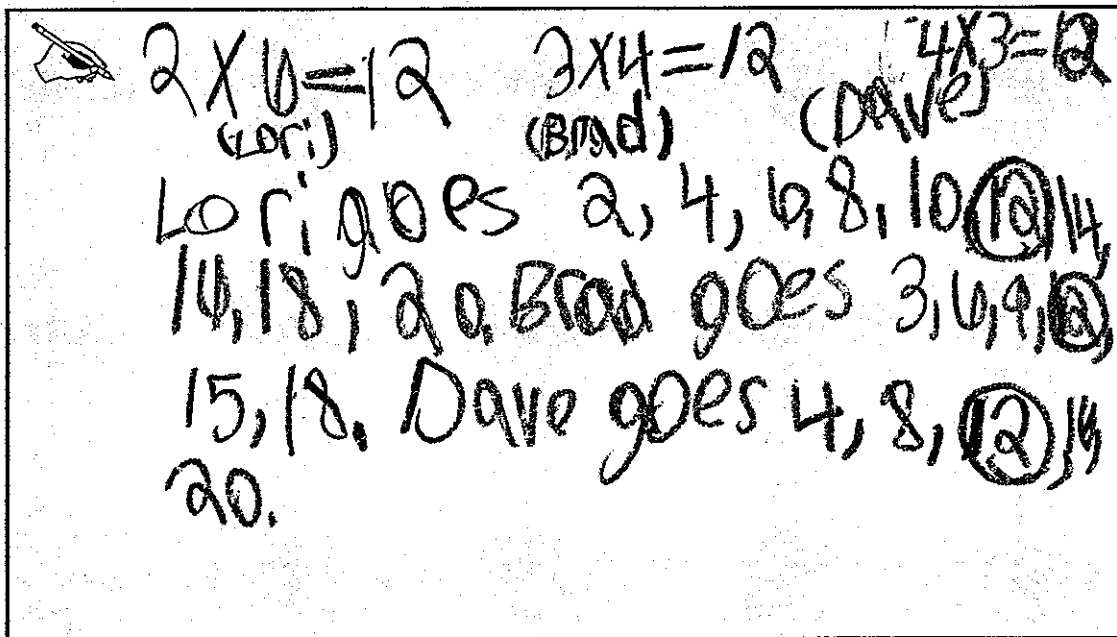 2 X 6 = 12 3X4 = 12 4X3 = 12
(Lori) (Brad) (Dave)
Lori goes 2, 4, 6, 8, 10, 12, 14,
16, 18, 20. Brad goes 3, 6, 9, 12,
15, 18. Dave goes 4, 8, 12, 16,
20.